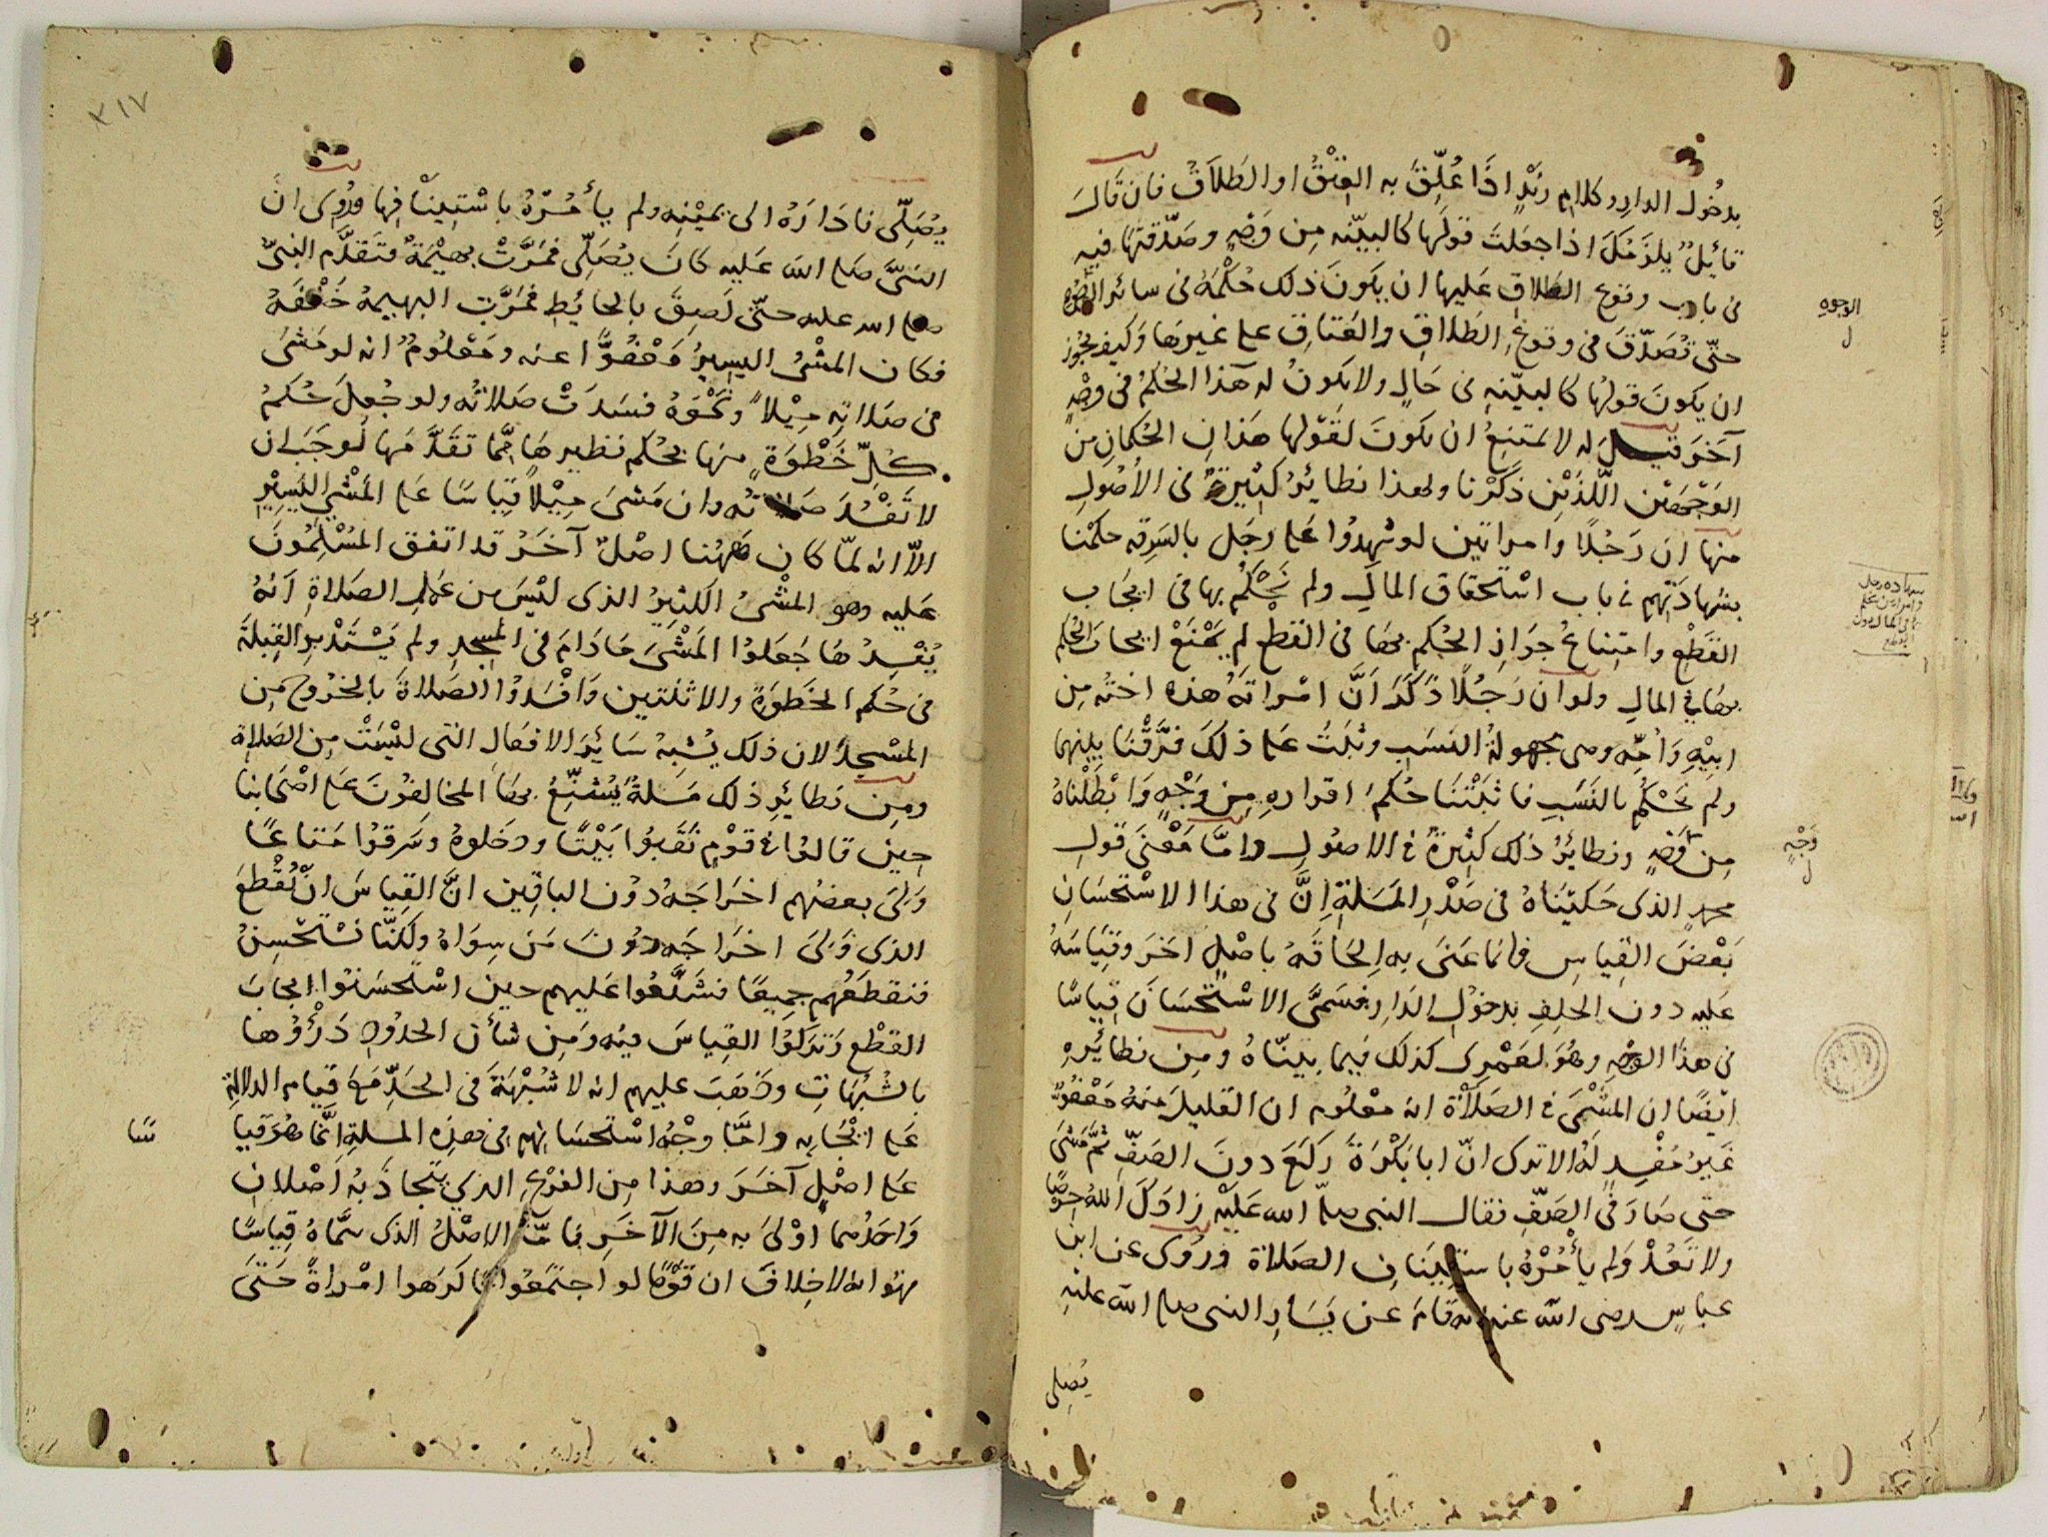 بدخُول الدار وكلام زيْدٍ اذَا عُلِّقَ به العِتْقُ او الطَلاَقُ فان قَالَ
قائِلٌ يلزَمُكَ اذا جعَلتَ قولَها كالبيّنه مِن وَجْهٍ وصَدّقتَها فيه
فى باب وقوع الطَلاقِ عَليها ان يكونَ ذلك حُكْمَهُ فى سائر الوجُوه
حتّى تُصَدّقَ فى وقوعِ الطَلاقِ والعَتاقِ على غيرها وكيف يجُوز
ان يكونَ قولُها كالبيّنهِ فى حَالٍ ولا يكونُ له هَذا الحُكمُ فى وجْهٍ
آخَر قيلَ له لا يمتنِعُ ان يكونَ لقَوْلها هَذانِ الحُكمانِ من
الوَجْهَيْن اللّذَيْنِ ذكَرْنا ولهذا نظائِرُ كثِيرةٌ فى الأُصُولِ
منها ان رَجُلًا وامراتين لو شهِدُوا على رجُل بالسَرِقه حكمْنا
بشهادَتِهم فى باب اسْتحقاق المالِ ولم نَحْكُمْ بها فى ايجَاب
القَطْعِ وامتِناعُ جوَازِ الحُكمِ بهَا فى القطْعِ لم يمْنَعْ ايجابَ الحُكم
بهَا فى المالِ ولو ان رَجُلًا ذكَرَ اَنَّ امْراتَهُ هذه اختُه مِن
ابيْهِ وَاُمِّه وهى مجهولةُ النسَبِ وثبَتَ على ذلكَ فرَّقْنَا بينهما
ولم نَحْكُمْ بالنسَبِ فاثبَتْنَا حُكمَ اقرارهِ مِن وَجْهٍ وَابْطَلْناهُ
مِن وجْهٍ ونظائِرُ ذلك كثِيرةٌ فى الاصُولِ وامّا مَعْنَى قولِ
محمدٍ الذى حَكيْنَاهُ فى صَدْرِ المَسَلةِ اِنَّ فى هذا الاسْتحْسَانِ
بَعْضَ القِياسِ فانما عَنَى بهِ اِلحَاقَهُ باصْلٍ اخَرَ وقِيَاسَهُ
عَليه دون الحلِفِ بدخوْلِ الدَارِ فسَمَّى الاسْتحْسَانَ قِياسًا
فى هذا الوجْهِ وهُوَ لعَمْرِى كذلك فيما بيّنّاهُ ومِن نظائِرِهِ
ايْضًا ان المَشْىَ فى الصَلَاةِ انه معْلُوم ان القليلَ منهُ مَعْفُوٌّ
غَيرُ مُفْسِدٍ لهَا الا ترى انّ ابا بَكْرَةَ ركَعَ دونَ الصَفِّ ثمَّ مَشَى
حتّى صَارَ فى الصَفِّ فقال النبى صلى الله عَليْه زادَكَ اللهُ حِرْصًا
ولا تَعُدْ ولم يأْمُرْهُ باستيْنَاف الصَلاة ورُوِىَ عن ابن
عباسٍ رضى الله عنه انه قامَ عن يَسَارِ النبى صلى الله عليه
يُصَلى
الوجوه
ل
شهاده رجل
وامراتين على
وَجْهٍ
ل
٣١٧
يُصَلِّى فادَارَهُ الى يَمِيْنِه ولم يأْمُرْهُ باسْتِينَافِها ورُوِىَ انَّ
النبىَّ صلى الله عَليه كانَ يُصَلِّى فمَرَّتْ بهيْمَةٌ فتَقدَّم النبىُّ
صلى الله عليه حتّى لَصِقَ بالحَائِطِ فمَرَّتِ البهيمهُ خَلْفَهُ
فكان المَشْىُ اليسِيرُ مَعْفُوًّا عنه ومَعْلُومٌ انه لو مَشَى
فى صَلاتِه مِيْلاً ونَحْوَهُ فسَدَتْ صَلاتُه ولو جُعِلَ حُكمُ
كُلِّ خَطْوَةٍ منها بحُكم نظيرهَا مِمَّا تقَدَّمَها لوجَبَ ان
لا تَفْسُدَ صَلاتُه وان مَشىَ مِيْلاً قِيَاسًا على المَشْىِ اليَسِيْرِ
الاّ انه لمّا كان هٰهُنا اصْلٌ آخَرُ قد اتفق المُسْلِمُونَ
عَليه وهو المَشْىُ الكثِيرُ الذى ليْسَ من عَمَلِ الصَلاةِ اَنهُ
يُفْسِدُهَا جَعَلوُا المَشْىَ مَادَامَ فى المسجِدِ ولم يَسْتَدْبِرِ القِبلَةَ
فى حُكم الخَطوَةِ والاثنتين وَافْسَدُوا الصَلاةَ بالخرُوج مِن
المسْجِدِ لان ذلك يُشبِهُ سَائِرَ الافعَالِ التى ليْسَتْ مِن الصَلاة
ومِن نظائِرِ ذلك مَسَلةٌ يُشَنِّعُ بهَا المخالِفُونَ عَلى اصْحَابنا
حين قالوُا فى قَوْمٍ نَقَبوُا بَيْتًا ودخَلوهُ وسَرقوُا مَتَاعًا
وَوَلِىَ بعضُهم اخرَاجَهُ دوُن الباقِين انَّ القِياسَ انْ يُقْطَعَ
الذى وَلِىَ اخرَاجَه دوُنَ مَن سِوَاهُ ولكِنَّا نسْتحْسِنُ
فنقطَعُهم جَمِيعًا فشَنَّعُوا عَليهم حين اسْتحسَنُوا ايجابَ
القَطْعِ وتركوُا القِياسَ فيه ومِن شأنِ الحدُودِ دَرْؤُها
بالشُبُهَاتِ وذهَبَ عليهم انه لا شُبْهَةَ فى الحَدِّ مَعَ قيام الدلالةِ
عَلى ايْجَابِه وامَّا وجْهُ اسْتحْسَانِهم فى هذِه المسلةِ اِنَّما هُوَ قيا
سًا
عَلى اصْلٍ آخَرَ وهذا مِن الفَرْعِ الذى يتَجاذَبُه اَصْلانِ
وَاحَدُهما اوْلىَ به مِنَ الآخَرِ فامّا الاصْلُ الذى سَمَّاهُ قِياسًا
فهُوَ انه لا خِلافَ ان قَوْمًا لو اجتمَعُوا فاكرَهوا امْراةً حَتّىَ